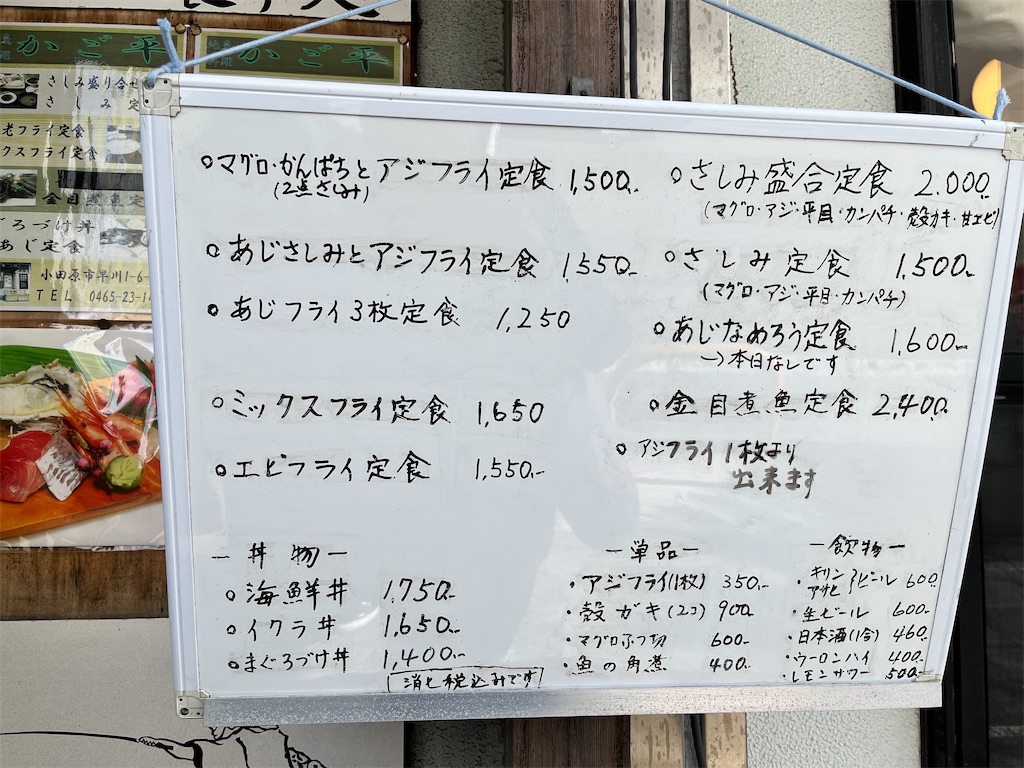 かご平
かご平
さしみ盛り合せ
さしみ定
老フライ定食
クスフライ定食
金目煮魚定
ろづけ丼
あじ定食
小田原市早川1-6-
TEL 0465-23-14
○マグロ・かんぱちとアジフライ定食 1,500.-
(2点さしみ)
○あじさしみとアジフライ定食 1,550.-
○あじフライ3枚定食 1,250
○ミックスフライ定食 1,650
○エビフライ定食 1,550.-
○さしみ盛合定食 2,000.-
(マグロ・アジ・平目・カンパチ・殻カキ・甘エビ)
○さしみ定食 1,500.-
(マグロ・アジ・平目・カンパチ)
○あじなめろう定食 1,600.-
→本日なしです
○金目煮魚定食 2,400.-
○アジフライ1枚より
出来ます
ー丼物ー
○海鮮丼 1,750.-
○イクラ丼 1,650.-
○まぐろづけ丼 1,400.-
消ヒ税込みです
ー単品ー
・アジフライ(1枚) 350.-
・殻ガキ(2コ) 900.-
・マグロぶつ切 600.-
・魚の角煮 400.-
ー飲物ー
・キリン アサヒ }ビール 600
・生ビール 600.-
・日本酒(1合) 460.-
・ウーロンハイ 400.-
・レモンサワー 500.-